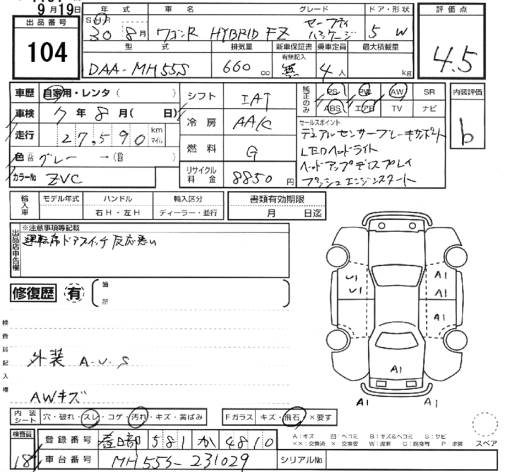 9月19日
出品番号
104
年式
車名
グレード
ドア・形状
30年8月
ワゴンR HYBRID FZ
セーフティパッケージ
5 W
評価点
4.5
型式
排気量
新車保証書
乗車定員
最大積載量
DAA-MH55S
660 cc
有無記入
無
4人
kg
車歴
自家用・レンタ
車検
7年8月( 日)
走行
27,590 km マイル
色
グレー
カラーNo
ZVC
シフト
IAT
冷房
AA/C
燃料
G
リサイクル料金
8850円
純正のみ
PS
PW
AW
SR
ABS
エアB
TV
ナビ
内装評価
b
セールスポイント
デュアルセンサーブレーキサポート
LEDヘッドライト
ヘッドアップディスプレイ
プッシュエンジンスタート
輸入車
モデル年式
ハンドル
右H・左H
輸入区分
ディーラー・並行
書類有効期限
月 日迄
出品店申告欄
※注意事項等記載
運転席ドアスイッチ反応悪い
修復歴
有
箇所
検査員記入欄
外装 A.U.S
AWキズ
U1
U1
A1
A1
A1
A1
A1
A1
内装シート
穴・破れ・スレ・コゲ・汚れ・キズ・黄ばみ
Fガラス
キズ・飛石・×要す
検査員
181
登録番号
春日部 581 か 4810
車台番号
MH55S-231029
シリアルNo.
スペア